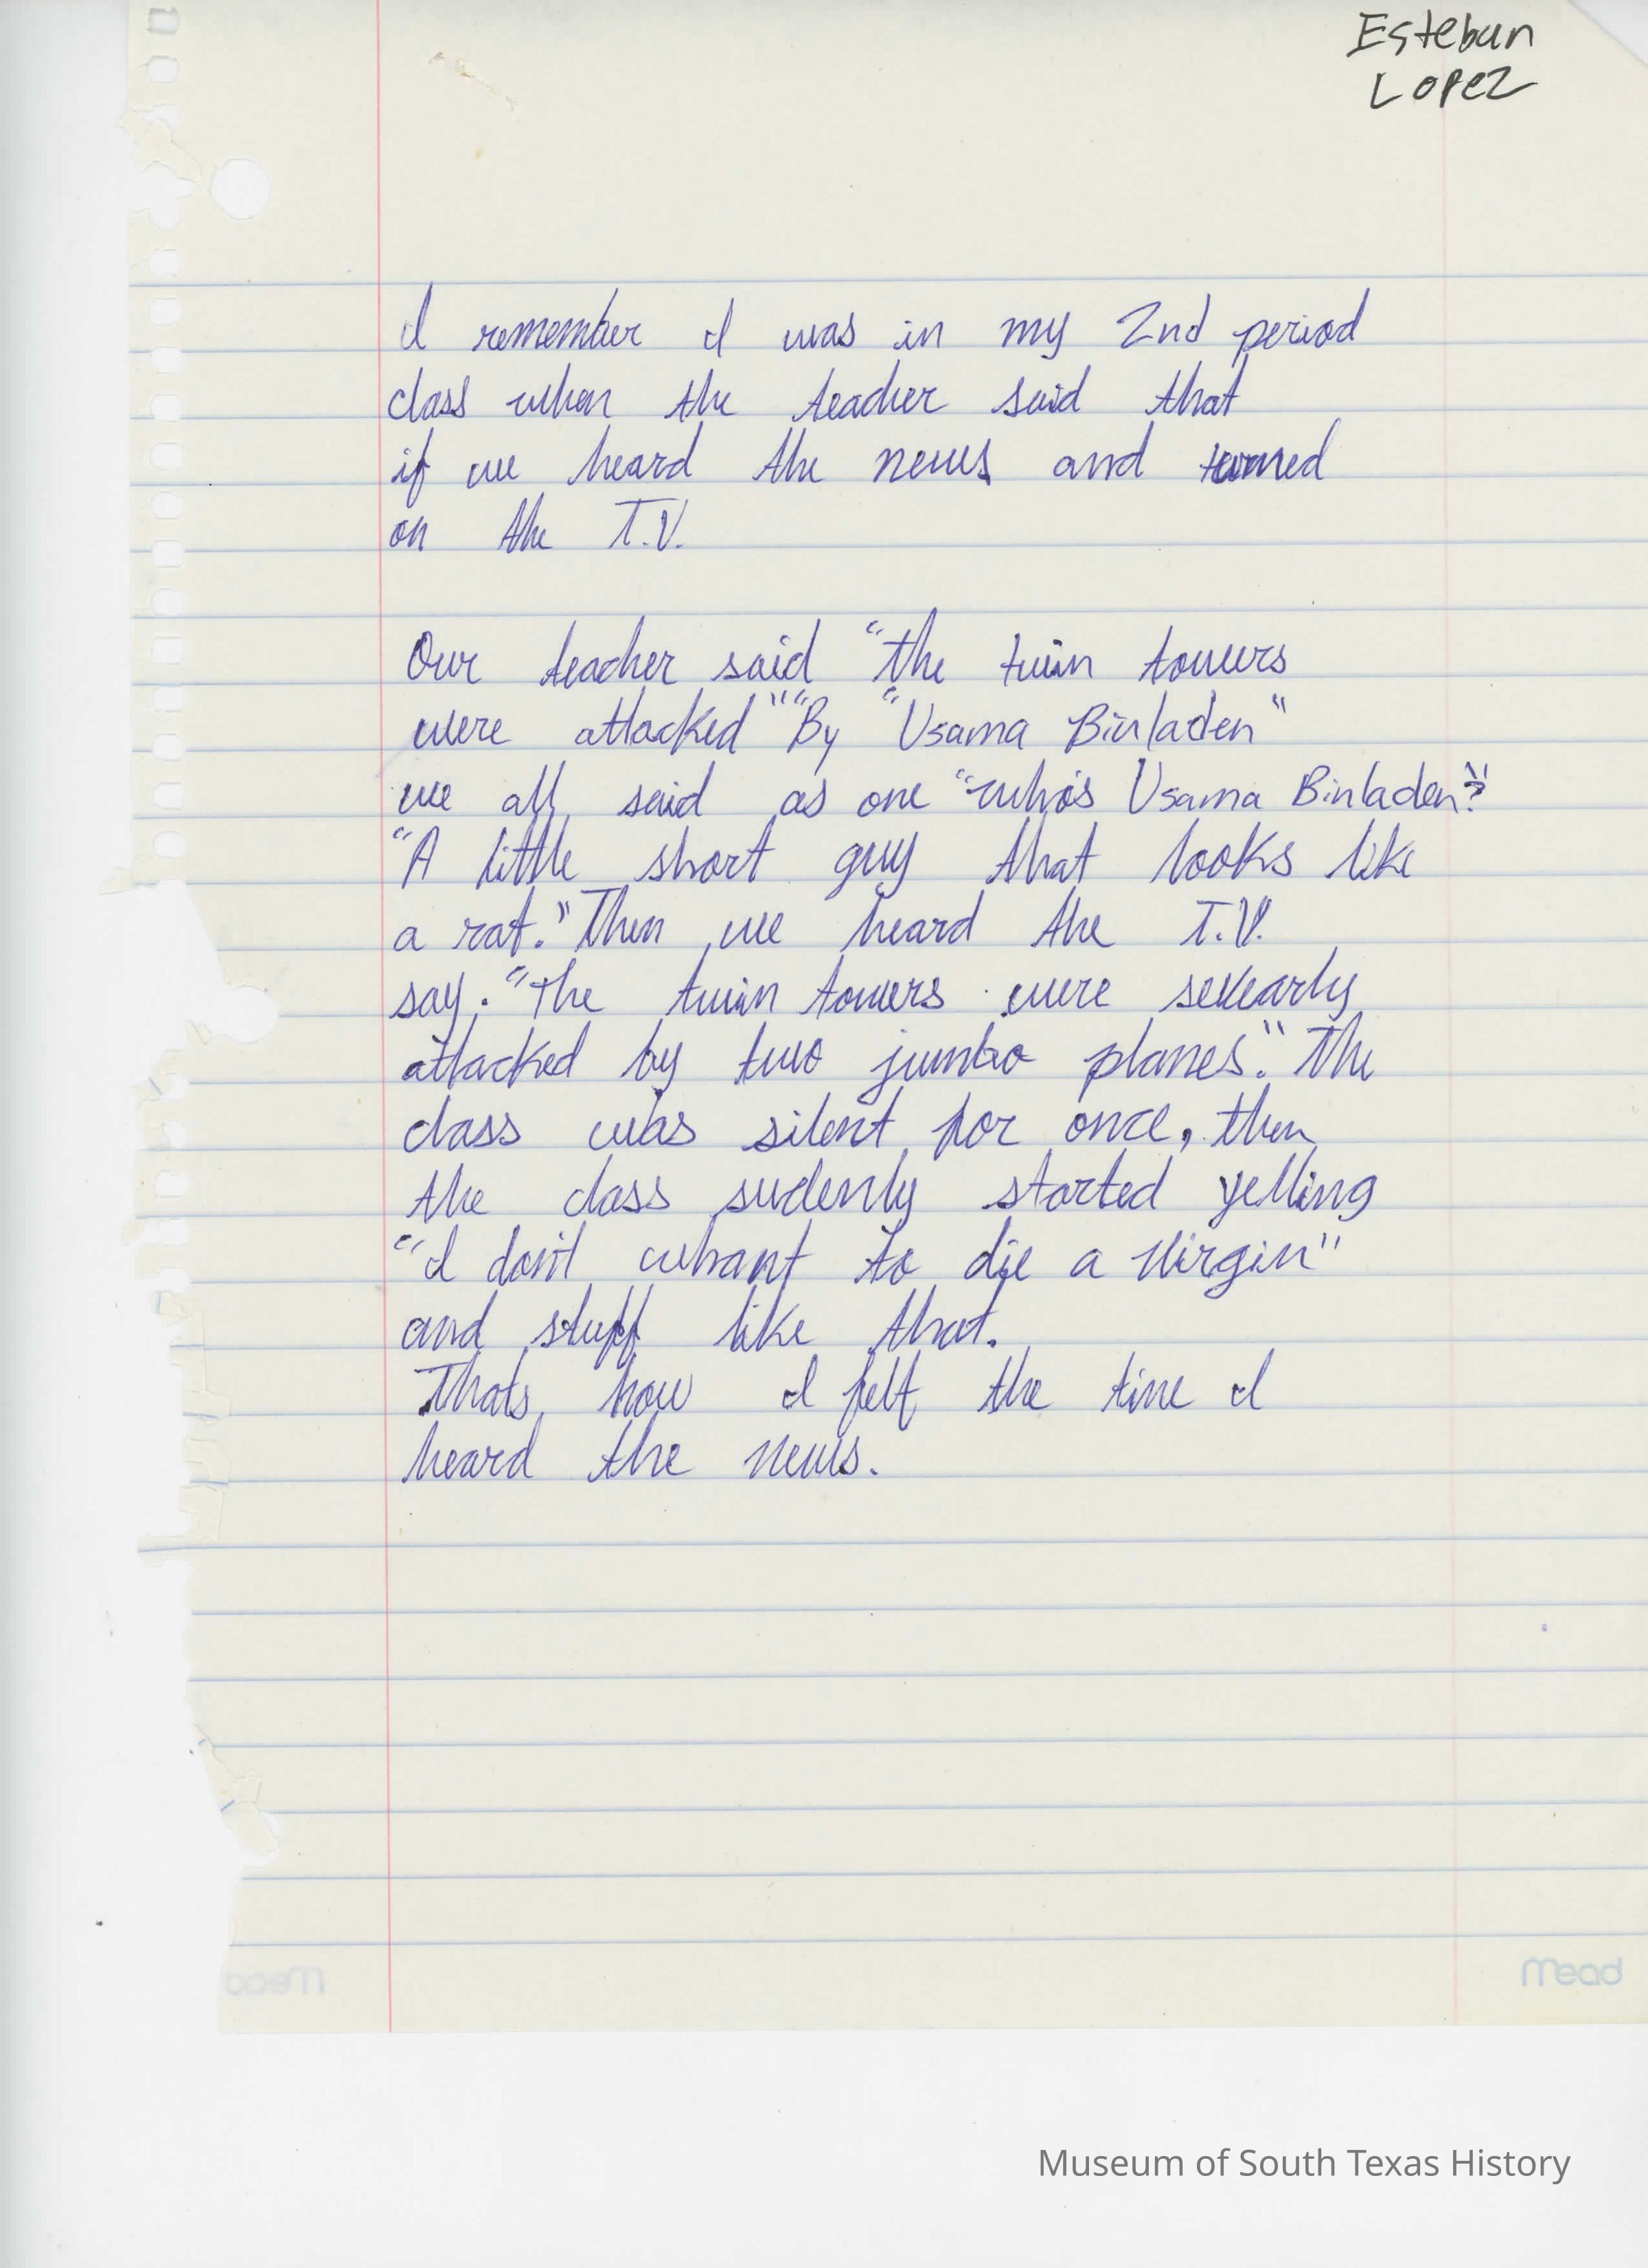 Esteban
Lopez
I remember I was in my 2nd period
class when the teacher said that
if we heard the news and turned
on the T.V.
Our teacher said "the twin towers
were attacked" "By "Usama Binladen"
we all said as one "who's Usama Binladen?"
"A little short guy that looks like
a rat." Then we heard the T.V.
say. "The twin towers were sevearly
attacked by two jumbo planes." The
class was silent for once, then
the class sudenly started yelling
"I don't whant to die a virgin"
and stuff like that.
Thats how I felt the time I
heard the news.
Mead
Museum of South Texas History